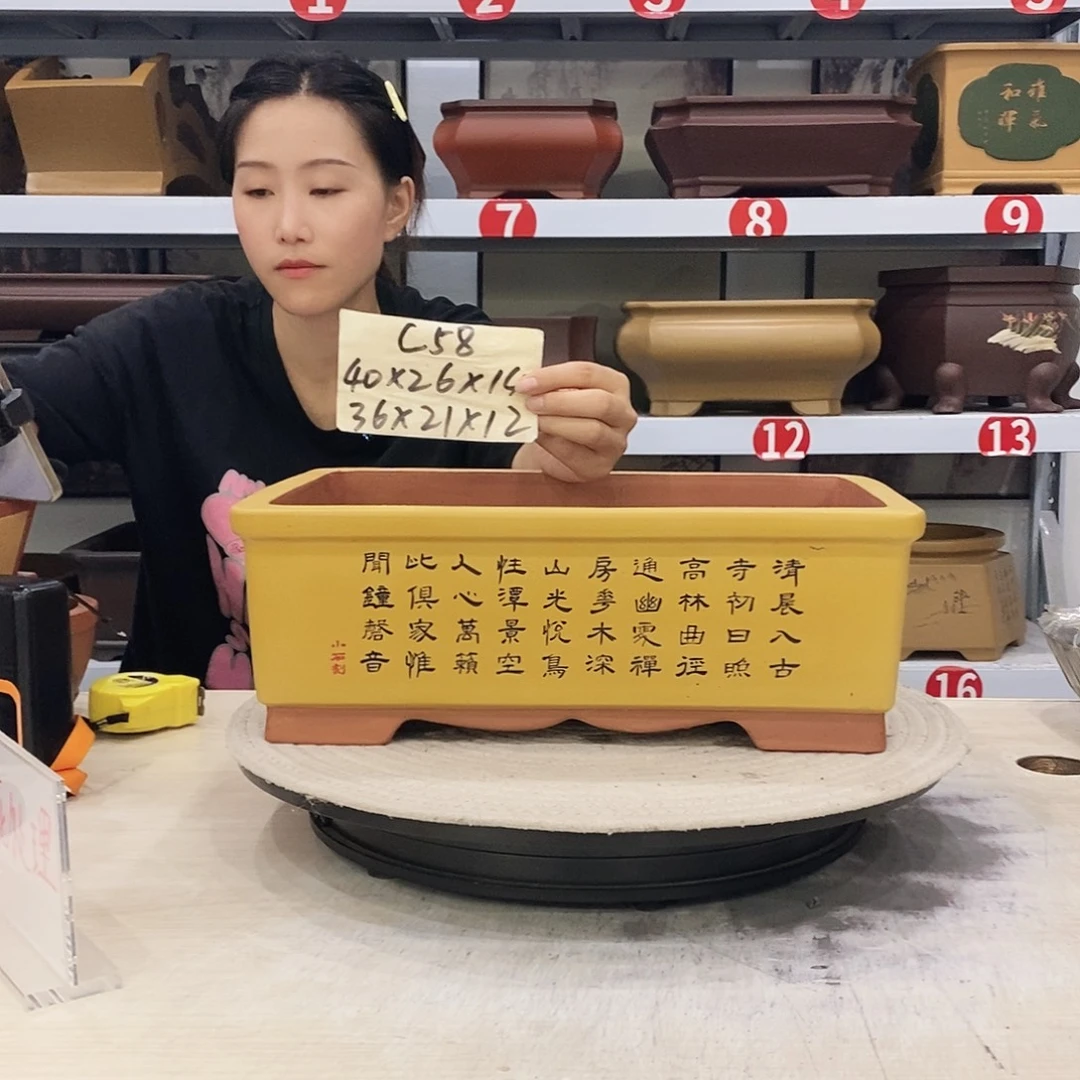 1
2
3
4
5
7
8
9
C58
40×26×15
36×21×12
12
13
清晨入古
寺初日照
高林曲徑
通幽處禪
房花木深
山光悅鳥
性潭景空
人心萬籟
此俱寂惟
聞鐘磬音
小石刻
16